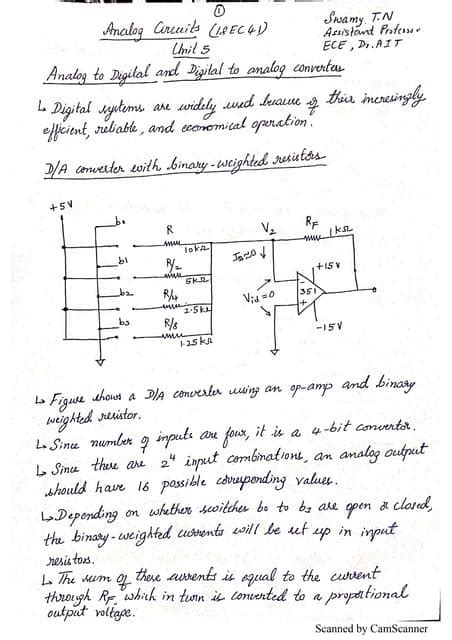 ①
Analog Circuits (18EC41)
Unit 5
Swamy. T.N
Assistant Professor
ECE, Dr. AIT
Analog to Digital and Digital to analog converters
↳ Digital systems are widely used because of their increasingly
efficient, reliable, and economical operation.
D/A converter with binary-weighted resistors
+5V
b0
R
10kΩ
b1
R/2
5kΩ
b2
R/4
2.5kΩ
b3
R/8
1.25kΩ
V2
RF
1kΩ
Vid=0
+15V
-
351
+
-15V
↳ Figure shows a D/A converter using an op-amp and binary
weighted resistor.
↳ Since number of inputs are four, it is a 4-bit converter.
↳ Since there are 2⁴ input combinations, an analog output
should have 16 possible corresponding values.
↳ Depending on whether switches b0 to b3 are open or closed,
the binary-weighted currents will be set up in input
resistors.
↳ The sum of these currents is equal to the current
through RF, which in turn is converted to a proportional
output voltage.
Scanned by CamScanner